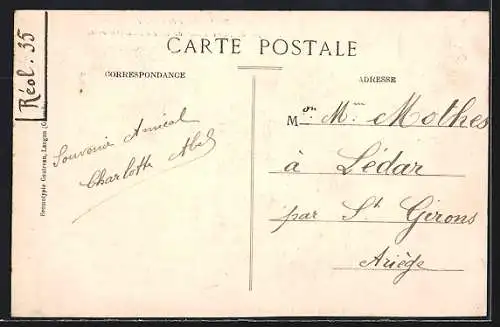 Réol. 35
CARTE POSTALE
CORRESPONDANCE
ADRESSE
Souvenir Amical
Charlotte Abel
Mon Mm Mothes
à Lédar
par St Girons
Ariège
Phototypie Gautreau, Langon